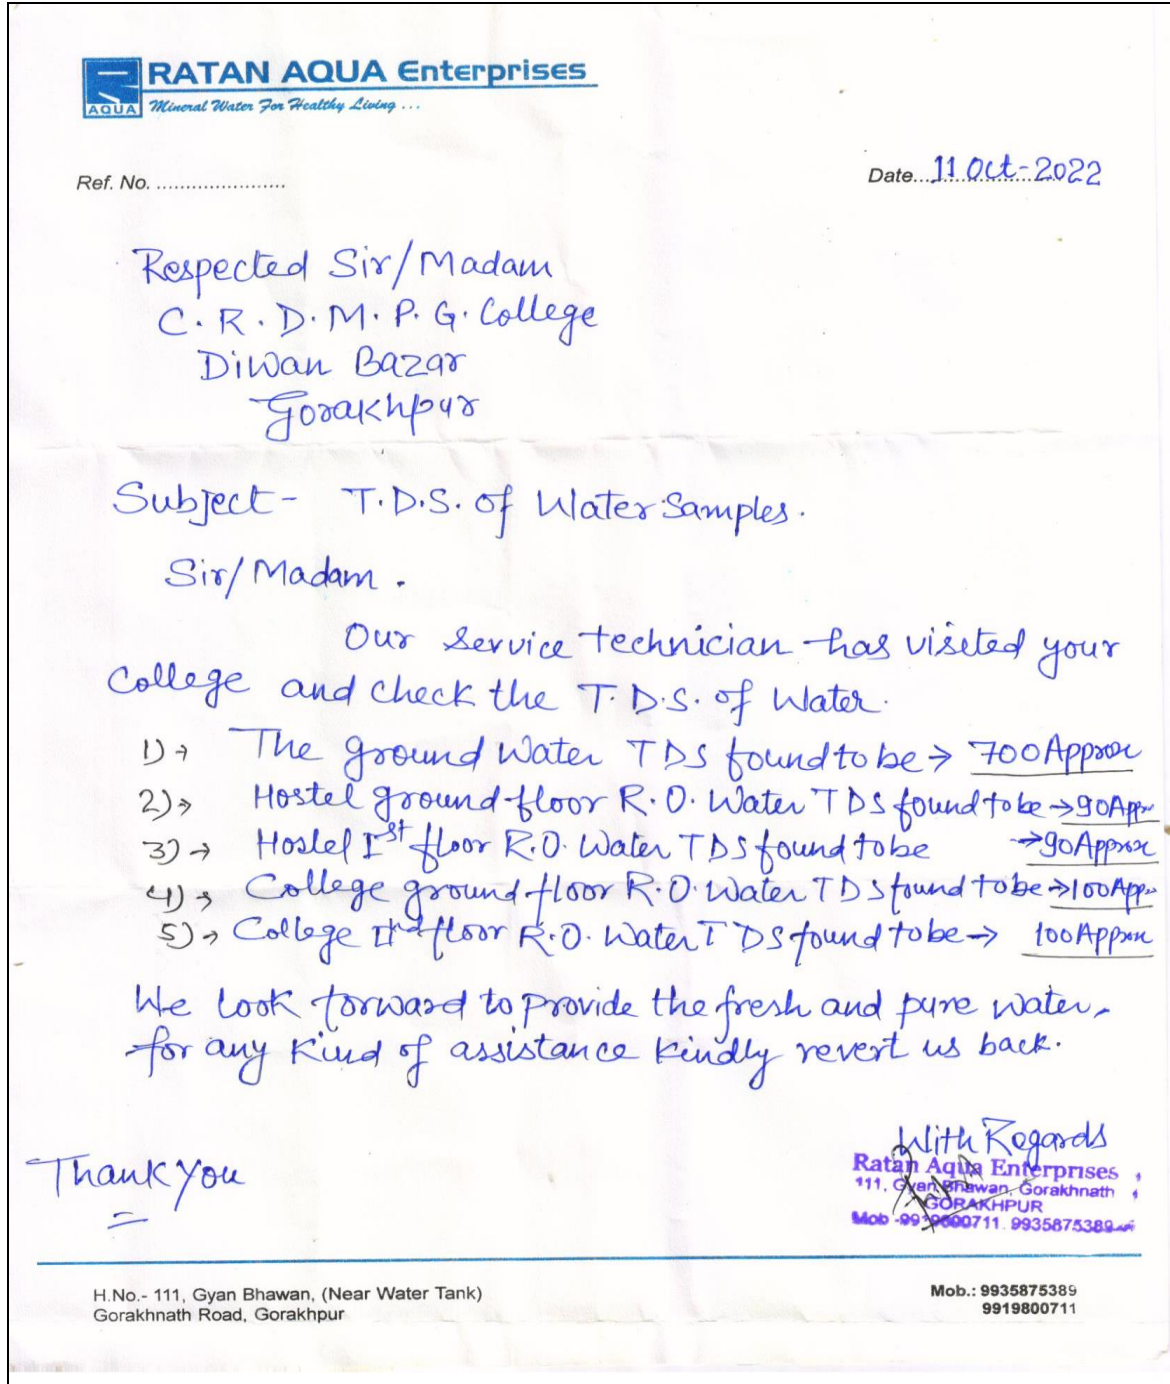 RATAN AQUA Enterprises
AQUA
Mineral Water For Healthy Living ...
Ref. No. ......................
Date...11 Oct-2022
Respected Sir/Madam
C.R.D.M.P.G. College
Diwan Bazar
Gorakhpur
Subject- T.D.S. of Water Samples.
Sir/Madam.
Our service technician has visited your
College and check the T.D.S. of Water.
1)→ The ground Water TDS found to be → 700 Approx
2)→ Hostel ground floor R.O. Water TDS found to be → 90 Appr
3)→ Hostel Ist floor R.O. Water TDS found to be → 90 Approx
4)→ College ground floor R.O. Water TDS found to be → 100 App
5)→ College floor R.O. Water TDS found to be → 100 Approx
We look forward to provide the fresh and pure water.
for any kind of assistance kindly revert us back.
With Regards
Thank You
Ratan Aqua Enterprises
111, Gyan Bhawan, Gorakhnath
GORAKHPUR
Mob 9935875389
H.No.- 111, Gyan Bhawan, (Near Water Tank)
Gorakhnath Road, Gorakhpur
Mob.: 9935875389
9919800711